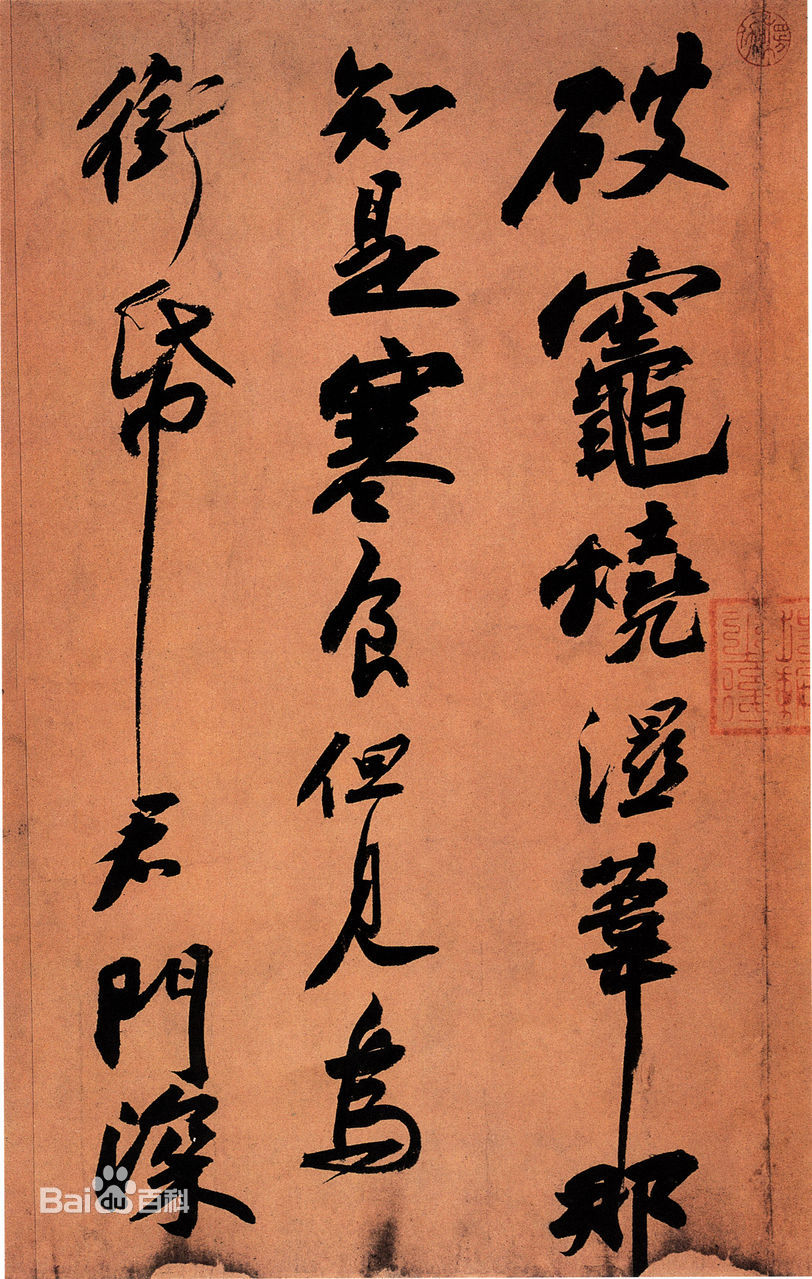 破竈燒濕葦那
知是寒食但見烏
銜帋君門深
Bai du 百科